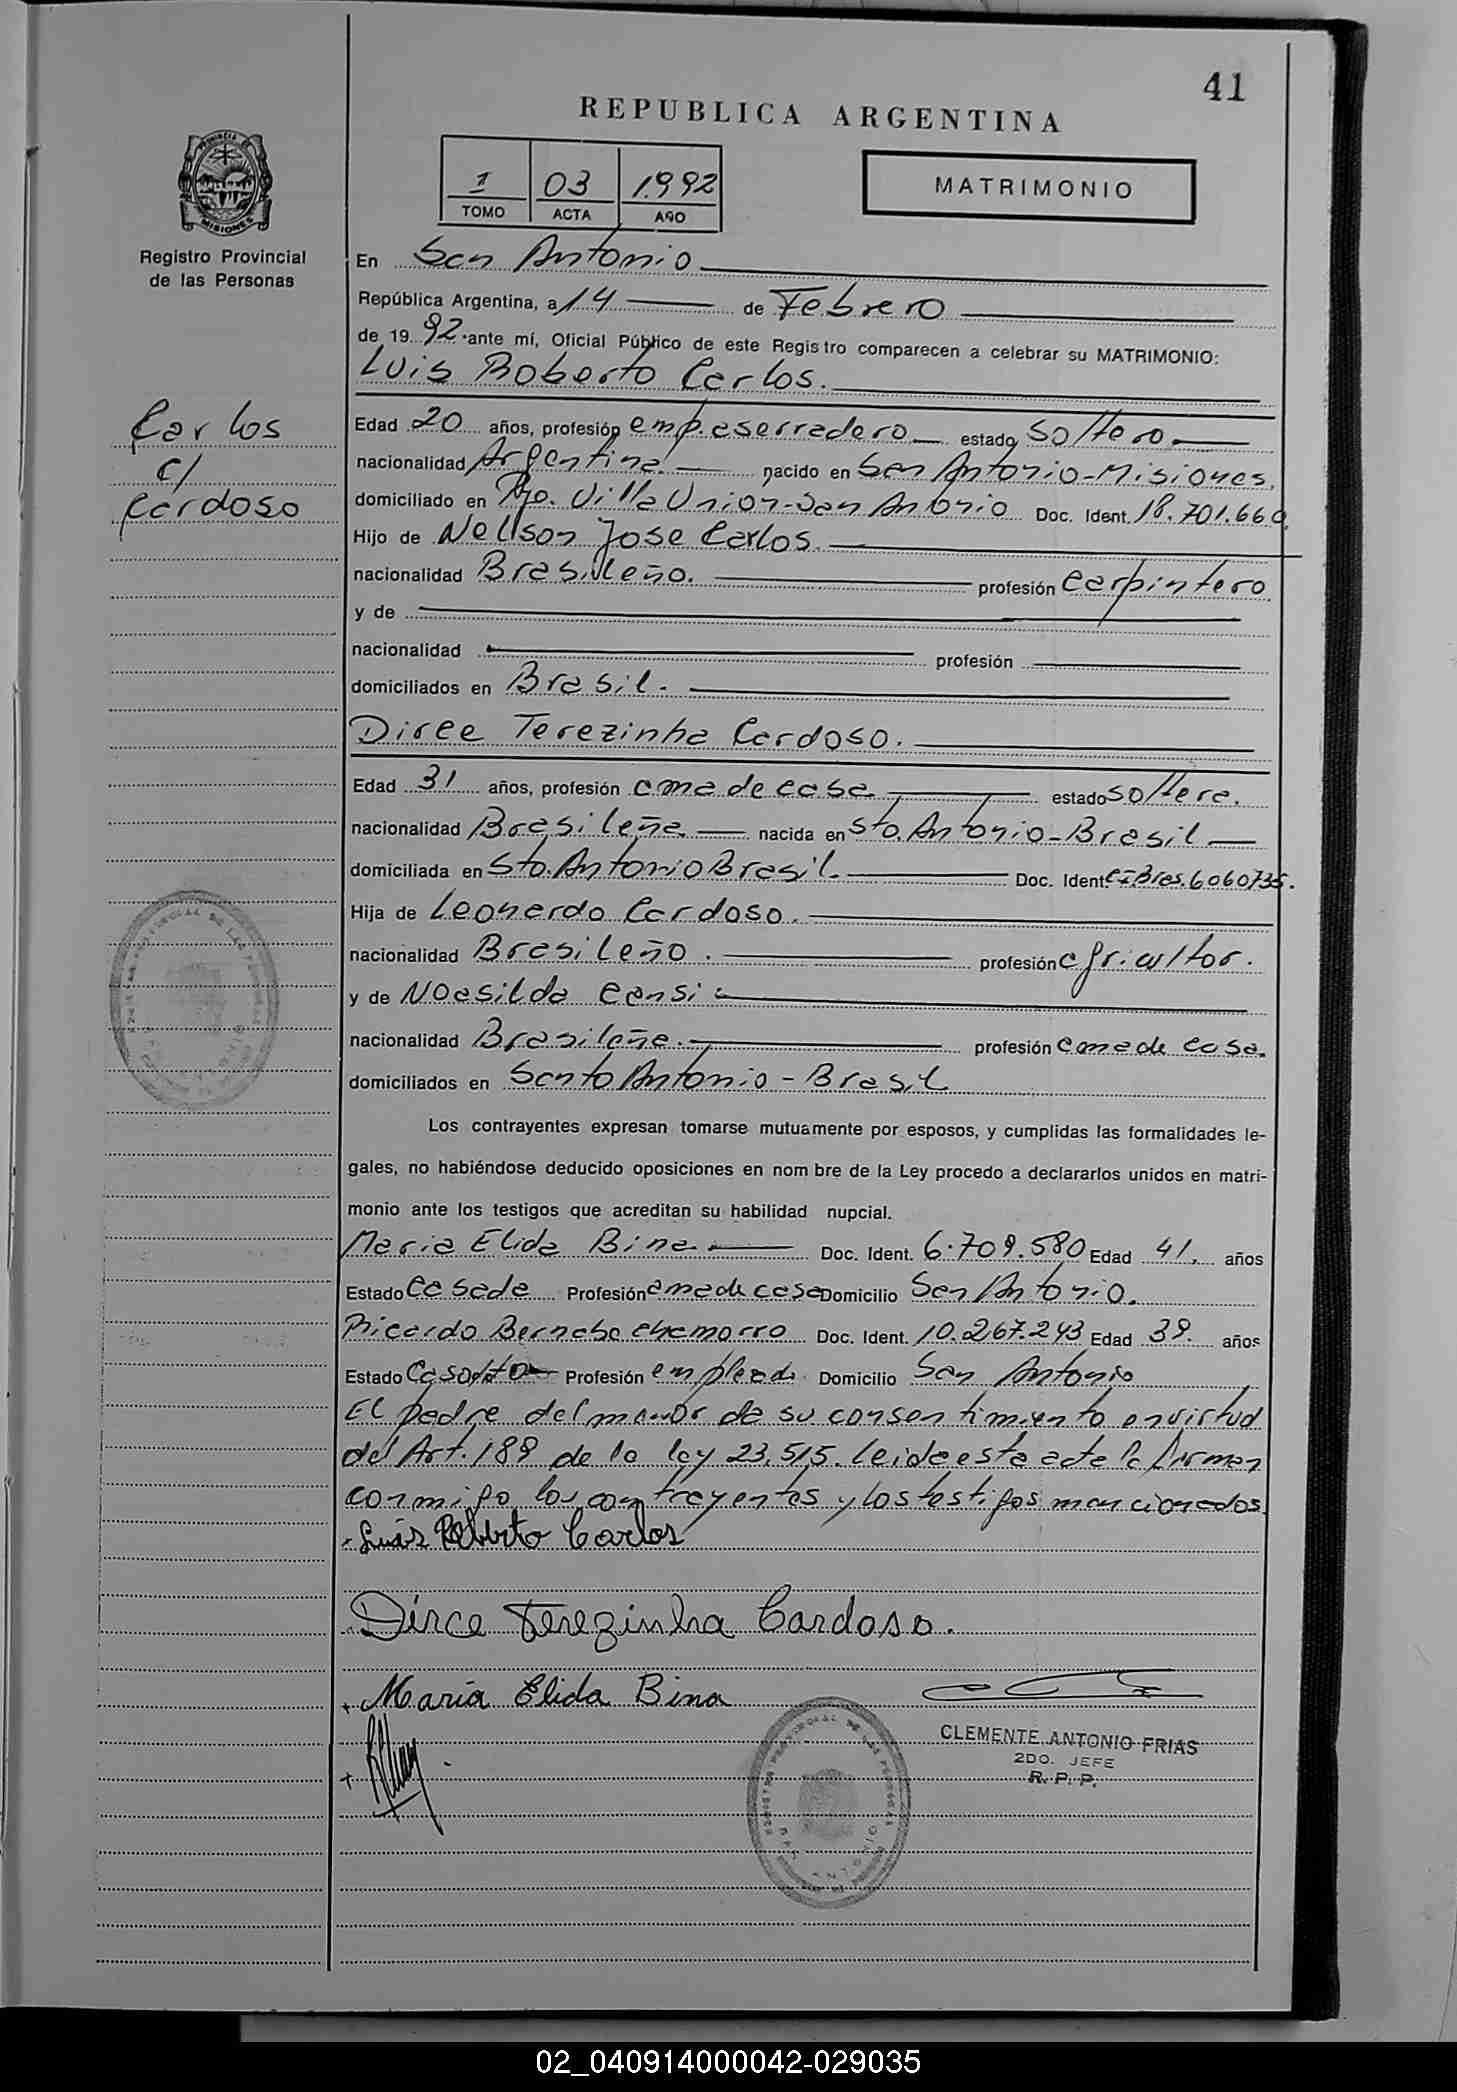 41
REPUBLICA ARGENTINA
1 03 1992
TOMO ACTA AÑO
MATRIMONIO
Registro Provincial
de las Personas
En San Antonio
República Argentina, a 14 de Febrero
de 19 92 ante mí, Oficial Público de este Registro comparecen a celebrar su MATRIMONIO:
Luis Roberto Carlos.
Carlos
c/
Cardoso
Edad 20 años, profesión emp. aserradero estado soltero
nacionalidad Argentina nacido en San Antonio-Misiones.
domiciliado en Villa Union-San Antonio Doc. Ident. 18.701.660
Hijo de Nellson Jose Carlos.
nacionalidad Brasileño. profesión Carpintero
y de
nacionalidad profesión
domiciliados en Brasil.
Dirce Terezinha Cardoso.
Edad 31 años, profesión ama de casa estado soltera.
nacionalidad Brasileña nacida en Sto. Antonio-Brasil
domiciliada en Sto. Antonio Brasil Doc. Ident. CI Bras. 6060735.
Hija de Leonardo Cardoso.
nacionalidad Brasileño. profesión agricultor.
y de Noasilda
nacionalidad Brasileña. profesión ama de casa.
domiciliados en Santo Antonio - Brasil
Los contrayentes expresan tomarse mutuamente por esposos, y cumplidas las formalidades le-
gales, no habiéndose deducido oposiciones en nom bre de la Ley procedo a declararlos unidos en matri-
monio ante los testigos que acreditan su habilidad nupcial.
Maria Elida Bina Doc. Ident. 6.709.580 Edad 41. años
Estado casada Profesión ama de casa Domicilio San Antonio.
Ricardo Bernabe Chamorro Doc. Ident. 10.267.243 Edad 39. años
Estado Casado Profesión empleado Domicilio San Antonio
El padre del menor da su consentimiento en virtud
del Art. 189 de la ley 23.515. leida esta acta la firman
conmigo los contrayentes y los testigos mencionados.
Luis Roberto Carlos
Dirce Terezinha Cardoso.
Maria Elida Bina
CLEMENTE ANTONIO FRIAS
2DO. JEFE
R. P. P.
02_040914000042-029035